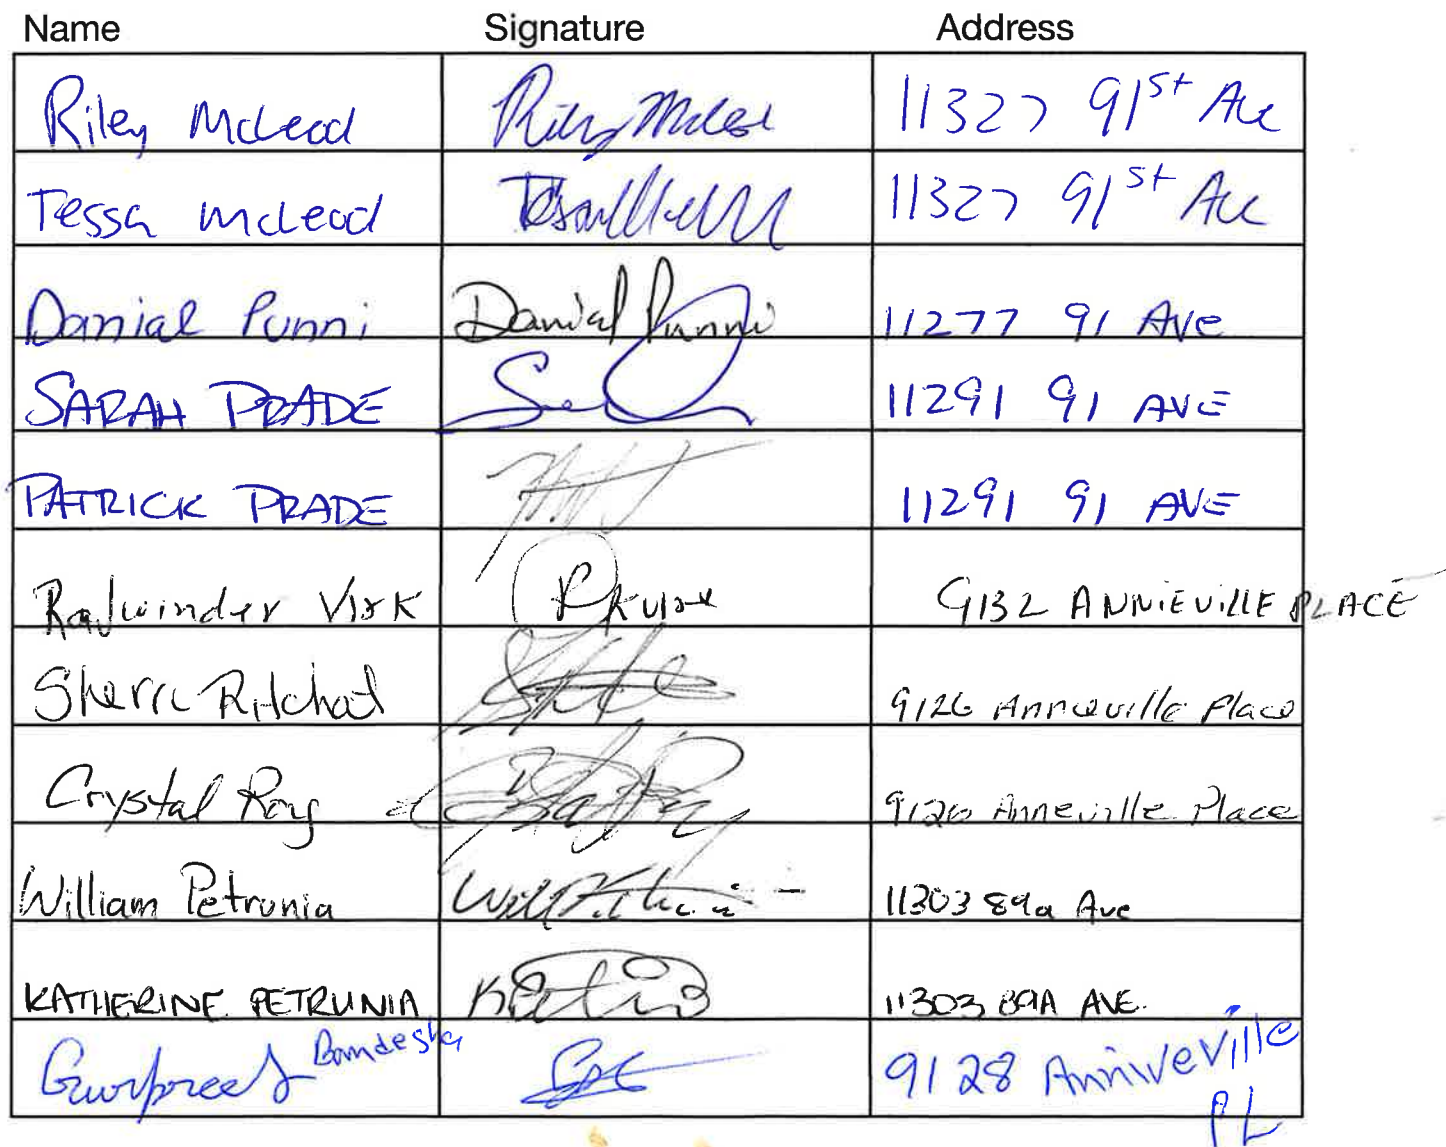 Name Signature Address
Riley McLead Riley McLeod 11327 91st Ave
Tessa McLeod 11327 91st Ave
Danial Punni Danial Punni 11277 91 Ave
SARAH PRADE 11291 91 AVE
PATRICK PRADE 11291 91 AVE
Rajwinder Virk 9132 ANNIEVILLE PLACE
Sherri Ritchot 9126 Annieville Place
Crystal Roy 9126 Anneville Place
William Petrunia 11303 89a Ave
KATHERINE PETRUNIA 11303 89A AVE.
Gurpreet Bandesha 9128 Annieveville
PL